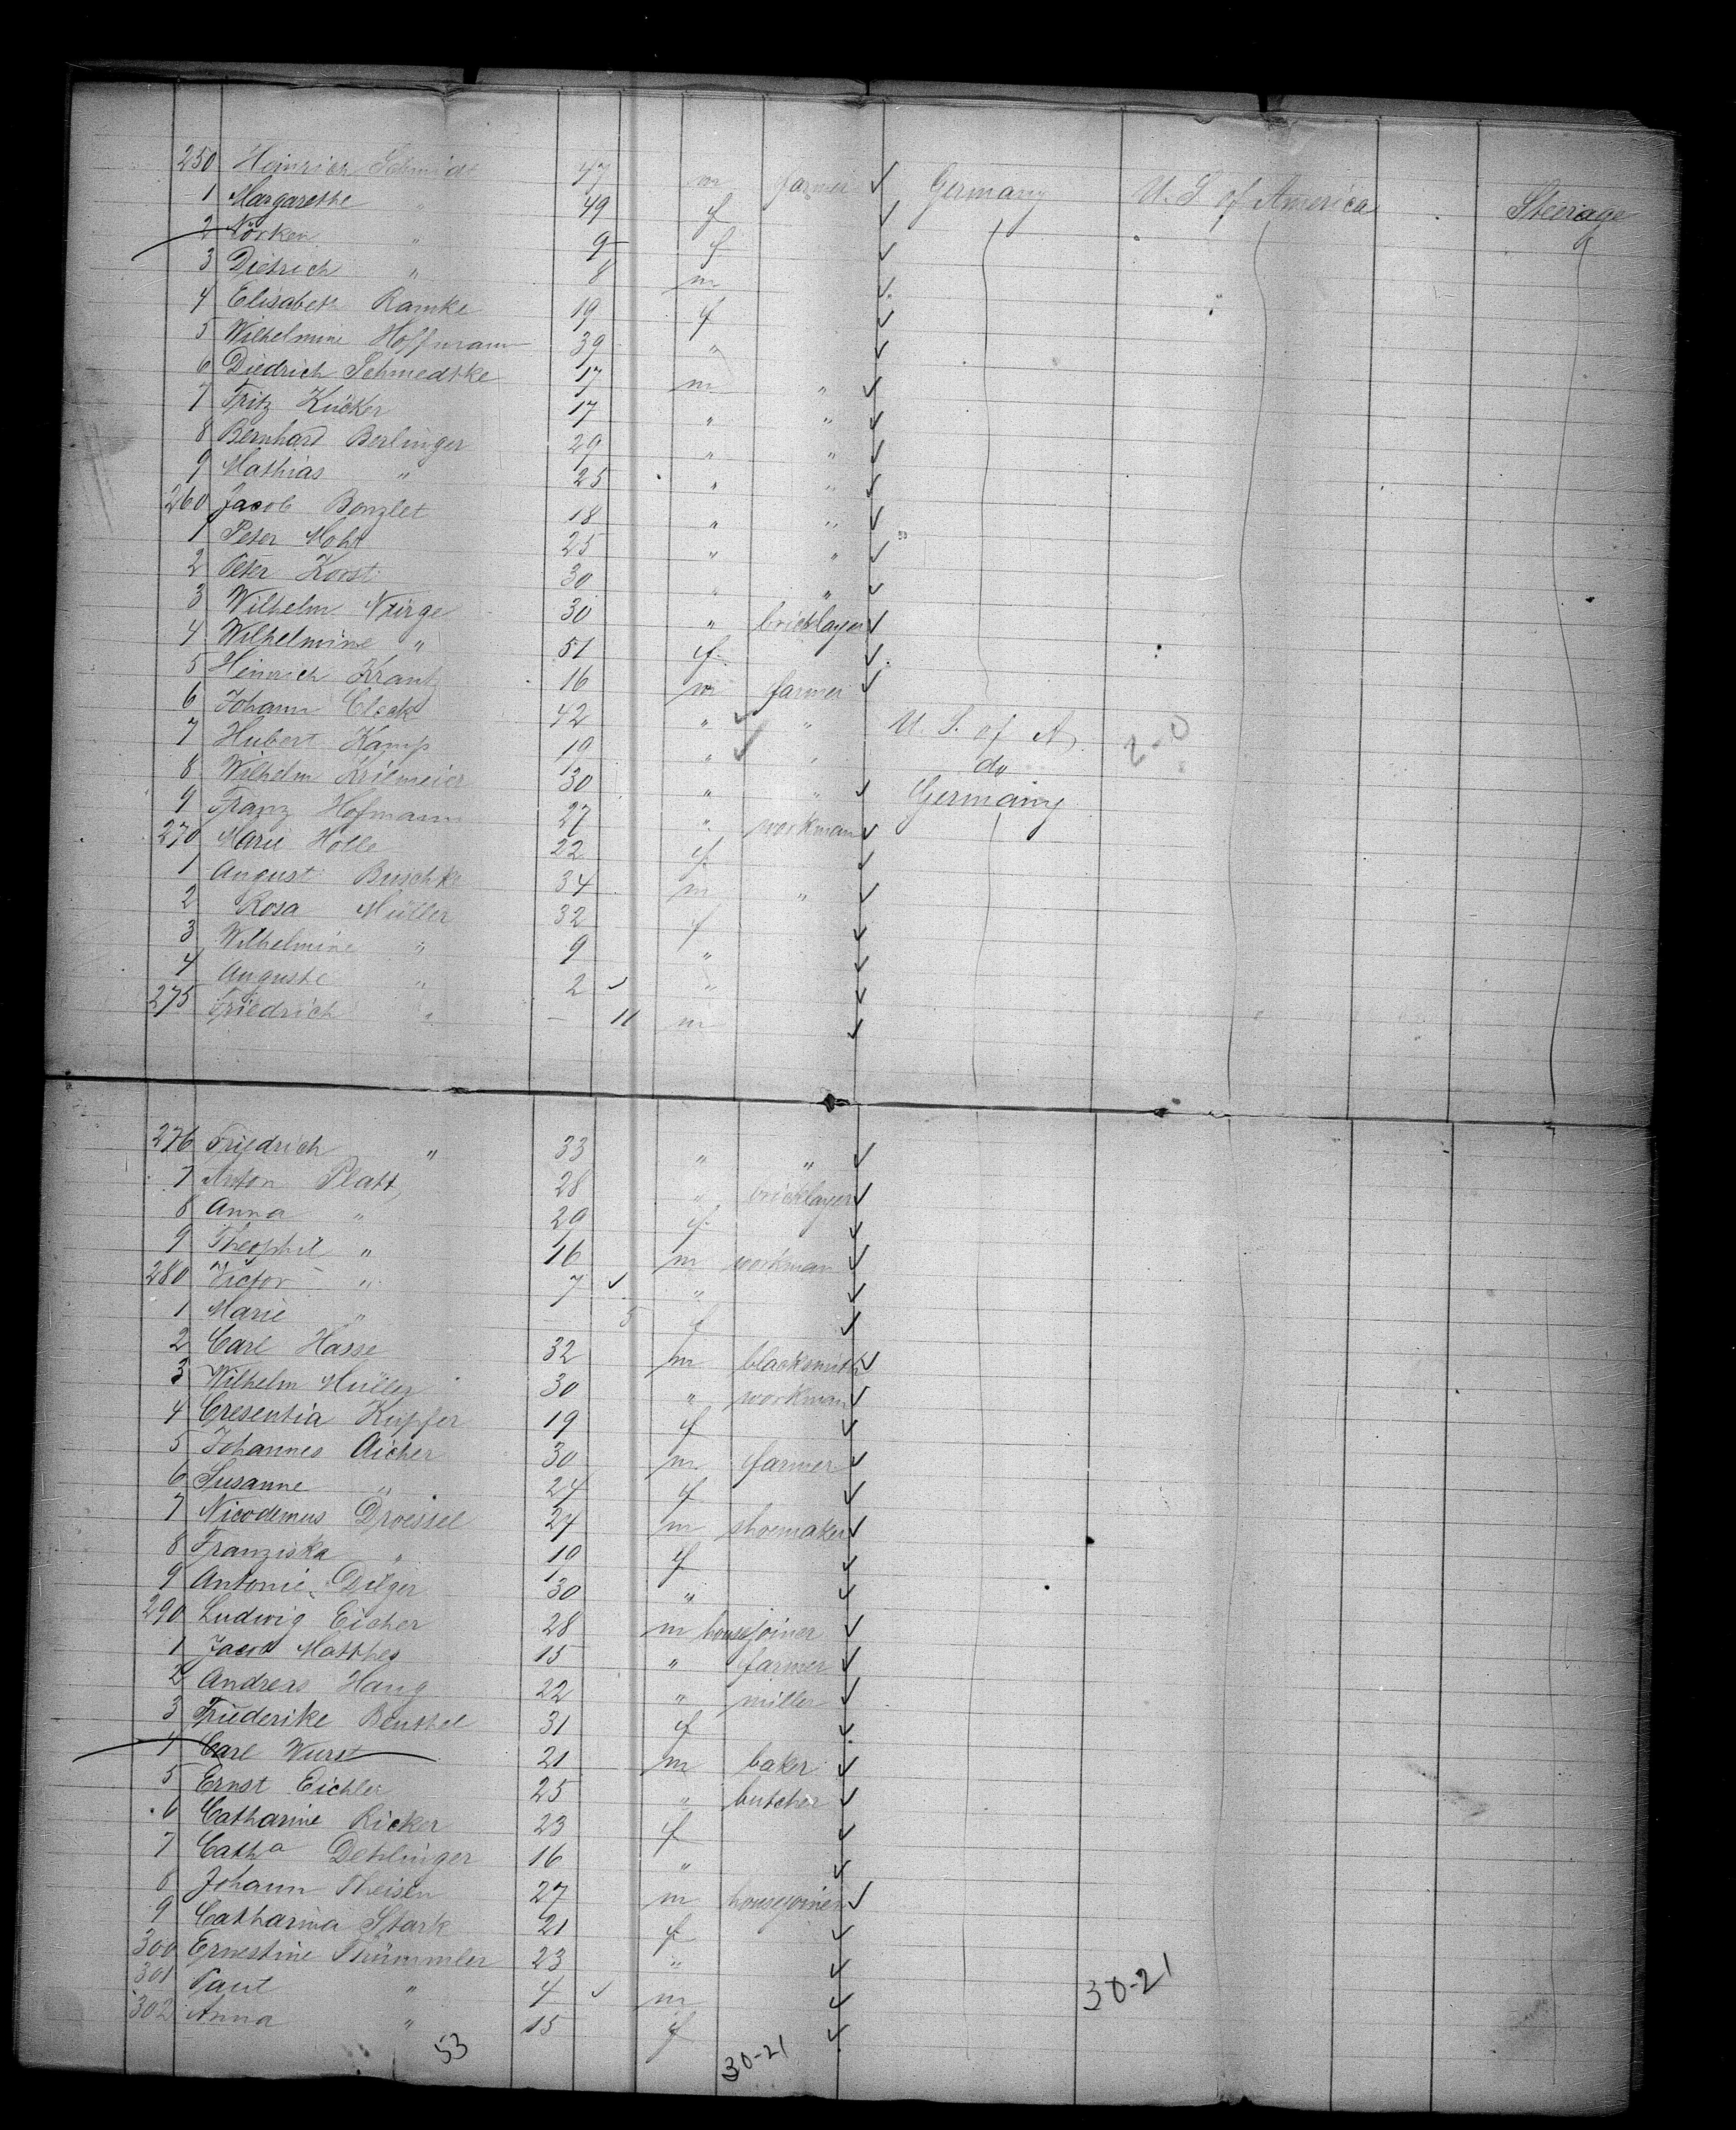 250 Heinrich Schmidt 47 m farmer ✓ Germany U. S of America Steerage
1 Margarethe " 49 f ✓
2 " 9 f ✓
3 Dietrich " 8 m ✓
4 Elisabeth Ramke 19 f ✓
5 Wilhelmine Hoffmann 39 " ✓
6 Diedrich Schmedtke 17 m " ✓
7 Fritz Kücker 17 " " ✓
8 Bernhard Berlinger 29 " " ✓
9 Mathias " 25 " " ✓
260 Jacob Bonzlet 18 " " ✓
1 Peter Mohr 25 " " ✓
2 Peter Korst 30 " " ✓
3 Wilhelm 30 " bricklayer ✓
4 Wilhelmine " 51 f ✓
5 Heinrich Krantz 16 m farmer ✓
6 Johann 42 " ✓ " U. S. of A. 2-0
7 Hubert Kamp 19 " ✓ " do
8 Wilhelm 30 " " ✓ Germany
9 Franz Hofmann 27 " workman ✓
270 Marie Holle 22 f ✓
1 August Buschke 34 m " ✓
2 Rosa Müller 32 f ✓
3 Wilhelmine " 9 " ✓
4 Auguste " 2 ✓ " ✓
275 Friedrich " – 11 m ✓
276 Friedrich " 33 " " ✓
7 Anton Platt 28 " bricklayer ✓
8 Anna " 29 f ✓
9 Theophil " 16 m workman ✓
280 Victor " 7 ✓ " ✓
1 Marie " – 5 f ✓
2 Carl Hasse 32 m blacksmith ✓
3 Wilhelm Müller 30 " workman ✓
4 Cresentia Kupfer 19 f ✓
5 Johannes Aicher 30 m farmer ✓
6 Susanne " 24 f ✓
7 Nicodemus Droessel 24 m shoemaker ✓
8 Franziska " 19 f ✓
9 Antonie Dilger 30 " ✓
290 Ludwig Eicher 28 m housejoiner ✓
1 Jacob Matthes 15 " farmer ✓
2 Andreas Haug 22 " miller ✓
3 Friederike Beuttel 31 f ✓
4 Carl Wurst 21 m baker ✓
5 Ernst Eichler 25 " butcher ✓
6 Catharine Ricker 23 f ✓
7 Catha Dehlinger 16 " ✓
8 Johann Theisen 27 m housejoiner ✓
9 Catharina Stark 21 f ✓
300 Ernestine Thümmler 23 " ✓
301 Paul " 4 ✓ m ✓ 30-21
302 Anna " 15 f ✓
53 30-21